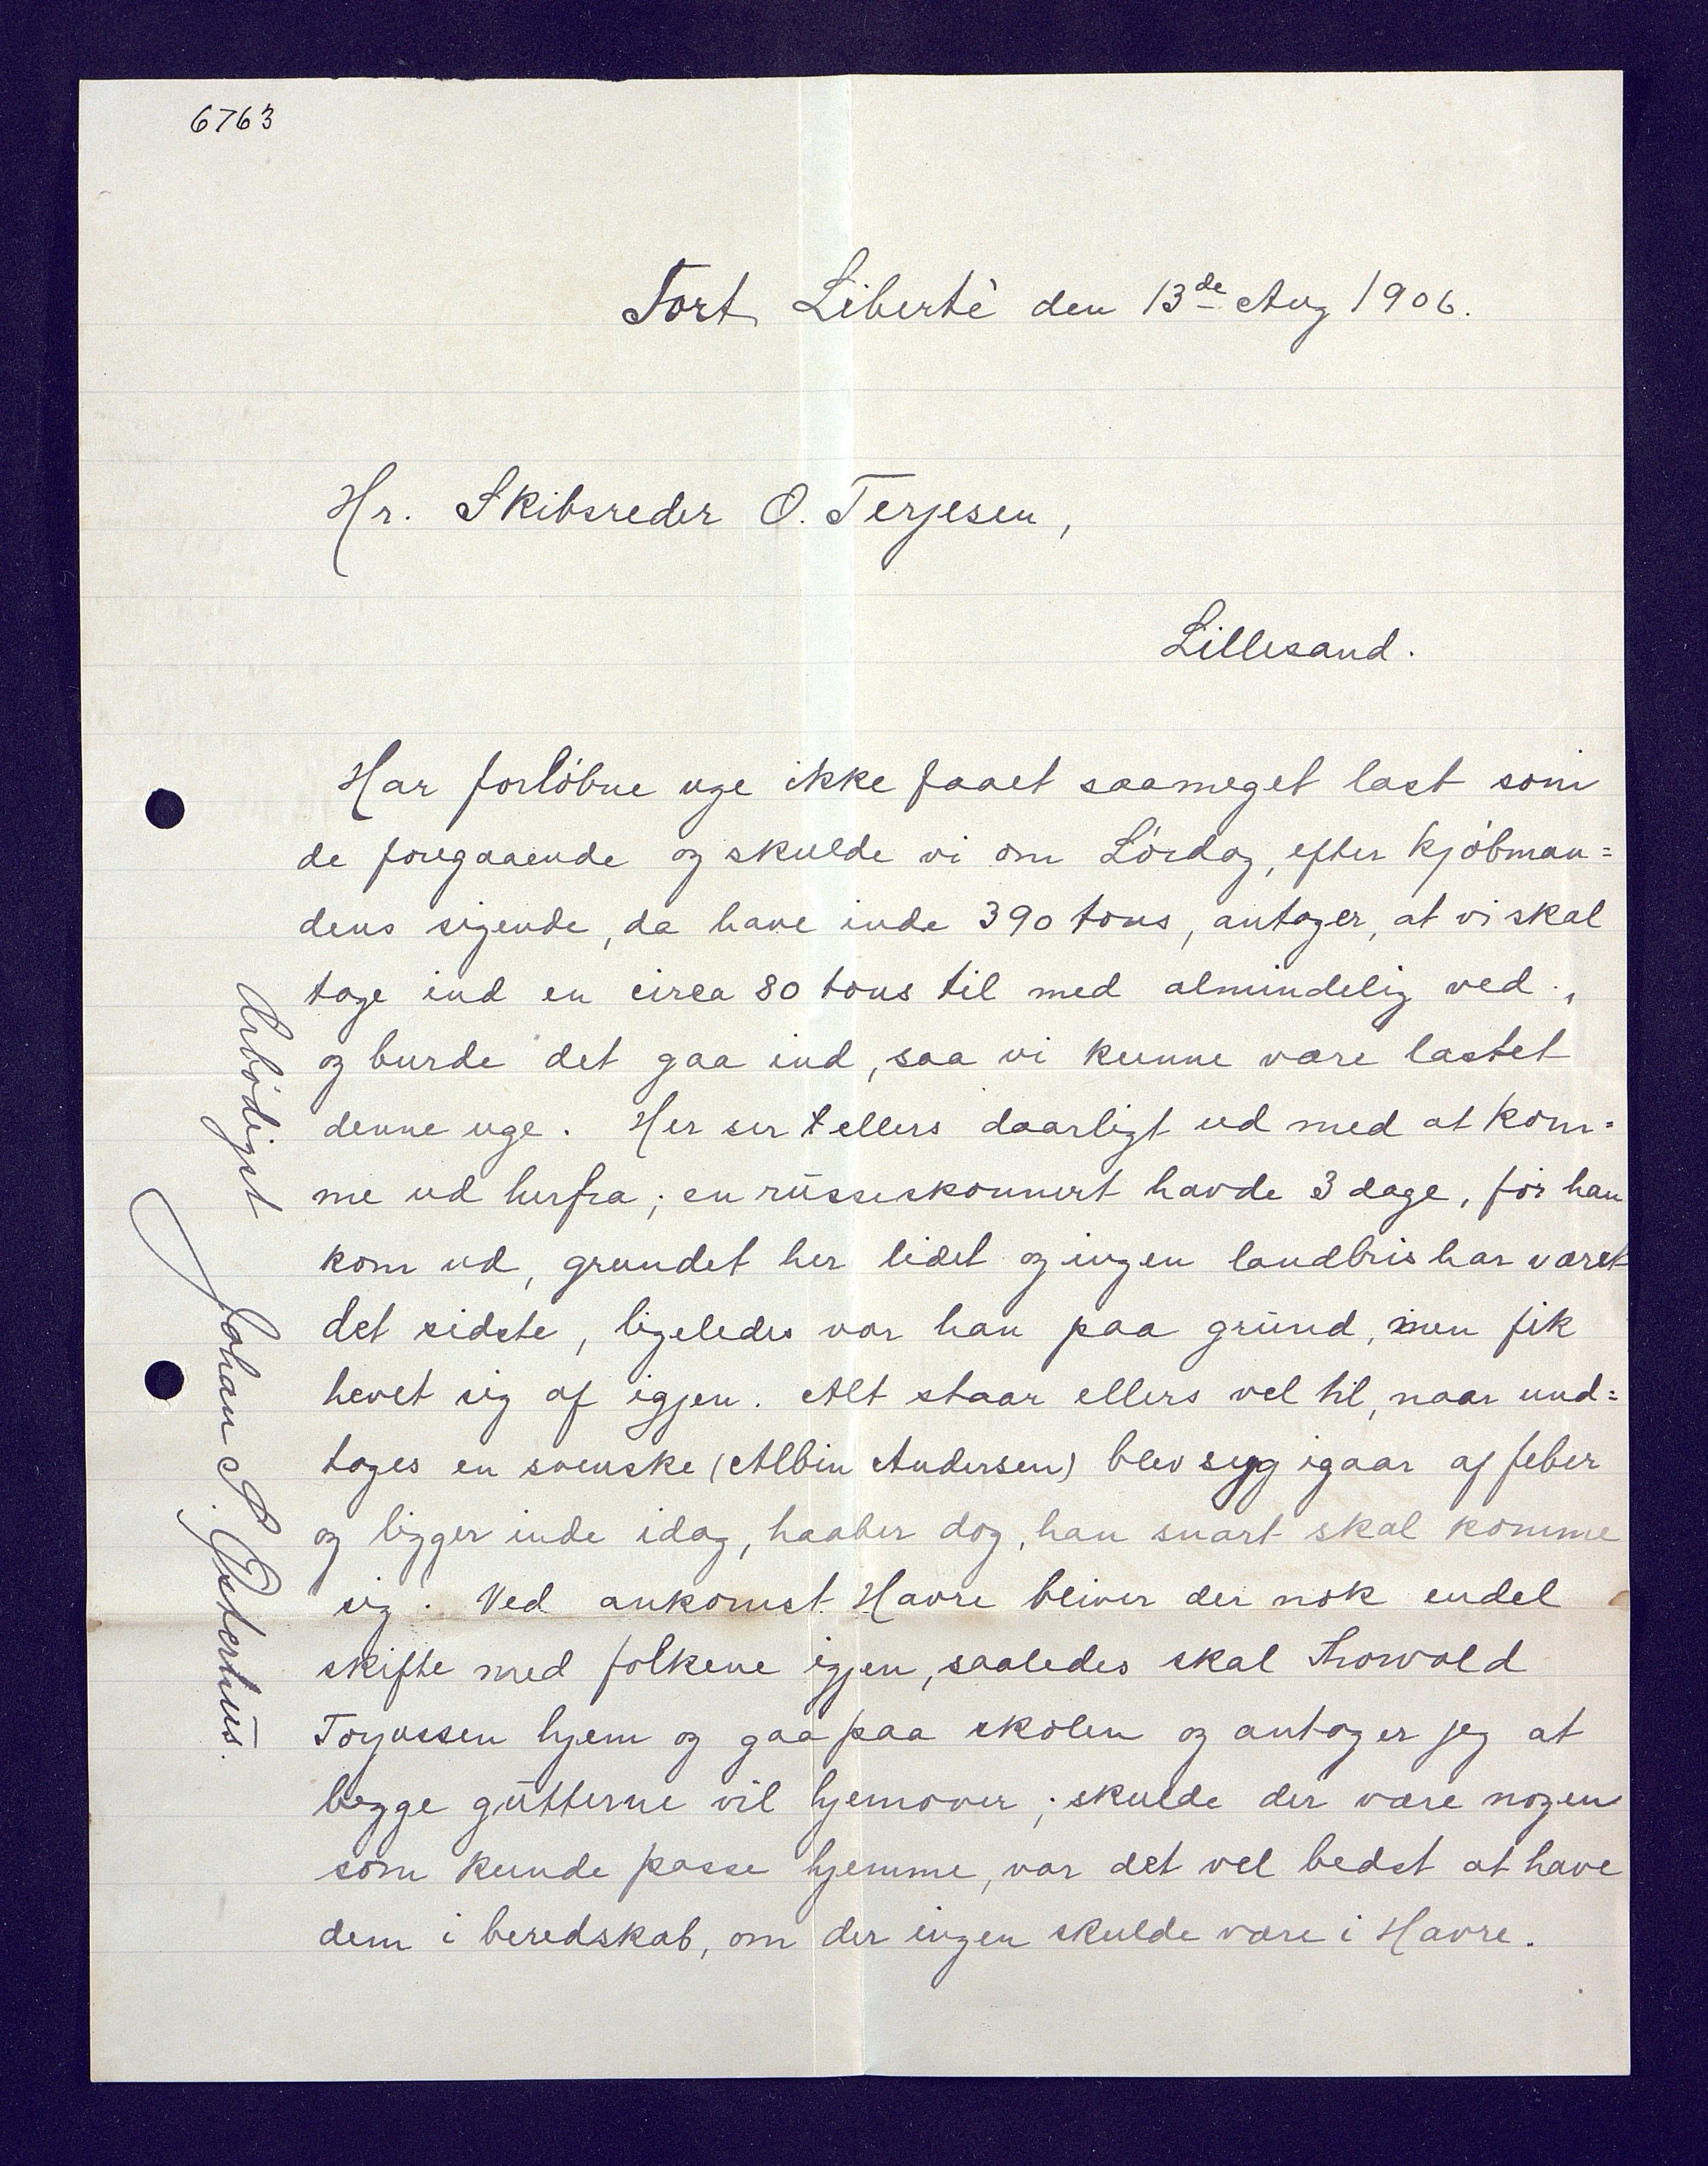 6763
Fort Liberté den 13de Aug 1906.
Hr. Skibsreder O. Terjesen,
Lillesand.
Har forløbne uge ikke faaet saameget last som
de foregaaende og skulde vi om Lørdag, efter kjøbman=
dens sigende, da have inde 390 tons, antager, at vi skal
tage ind en circa 80 tons til med almindelig ved.,
og burde det gaa ind, saa vi kunne være lastet
denne uge. Her ser t ellers daarligt ud med at kom=
me ud herfra; en russeskonnert havde 3 dage, før han
kom ud, grundet her lidet og ingen landbris har været
det sidste, ligeledes var han paa grund, men fik
hevet sig af igjen. Alt staar ellers vel til, naar und=
tages en svenske (Albin Andersen) blev syg igaar af feber
og ligger inde idag, haaber dog, han snart skal komme
sig. Ved ankomst Havre bliver der nok endel
skifte med folkene igjen, saaledes skal Thorvald
Torjussen hjem og gaa paa skolen og antager jeg at
begge gutterne vil hjemover; skulde der være nogen
som kunde passe hjemme, var det vel bedst at have
dem i beredskab, om der ingen skulde være i Havre.
Ærbødigst
Johan S. Østerhus.